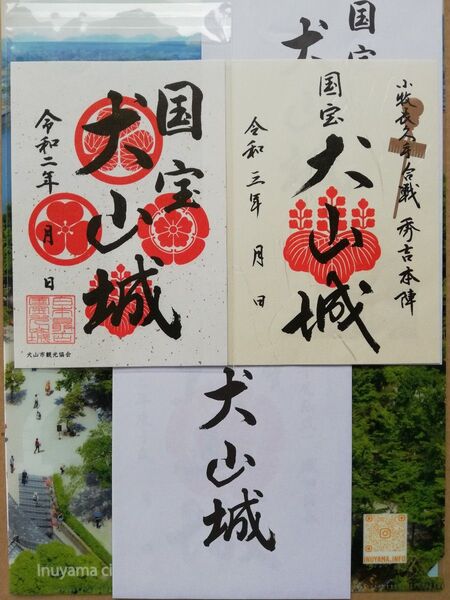 国宝
犬山
国宝
犬山城
令和二年
月
日
犬山市観光協会
小牧長久手合戦 秀吉本陣
国宝
犬山城
令和三年
月
日
犬山城
Inuyama ci
INUYAMA.INFO